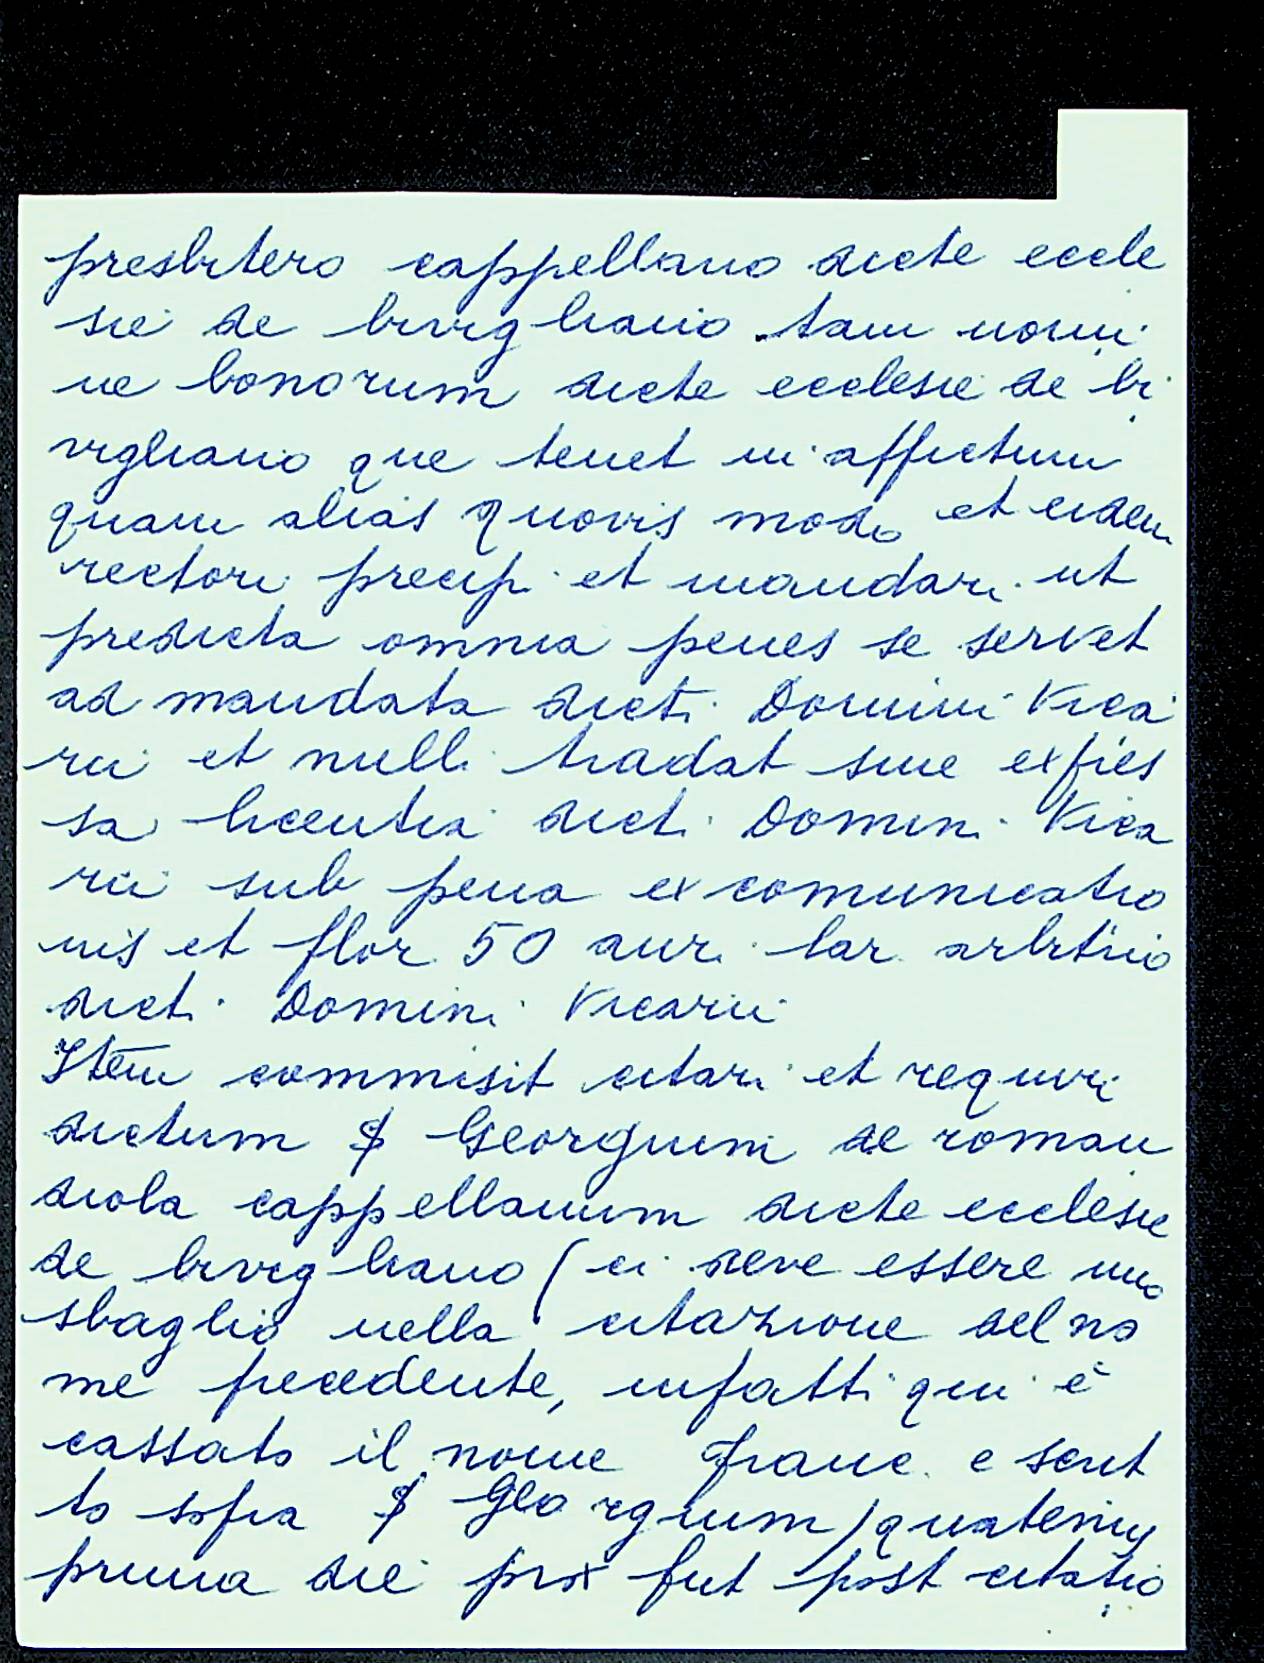 presbitero cappellano dicte eccle
sie de bivigliano tam nomi
ne bonorum dicte ecclesie de bi
vigliano que tenet in affictum
quam alias quovis modo et eidem
rectori precip. et mandari ut
predicta omnia penes se servet
ad mandata dicti Domini Vica
rii et nulli tradat sine expres
sa licentia dicti Domini Vica
rii sub pena excomunicatio
nis et flor. 50 auri lar. arbitrio
dicti Domini Vicarii
Item commisit citari et requiri
dictum § Georgium de roman
diola cappellanum dicte ecclesie
de bivigliano (ci deve essere uno
sbaglio nella citazione del no
me precedente, infatti qui è
cassato il nome Franc. e scrit
to sopra § Georgium) quatenus
prima die prox fut post citatio